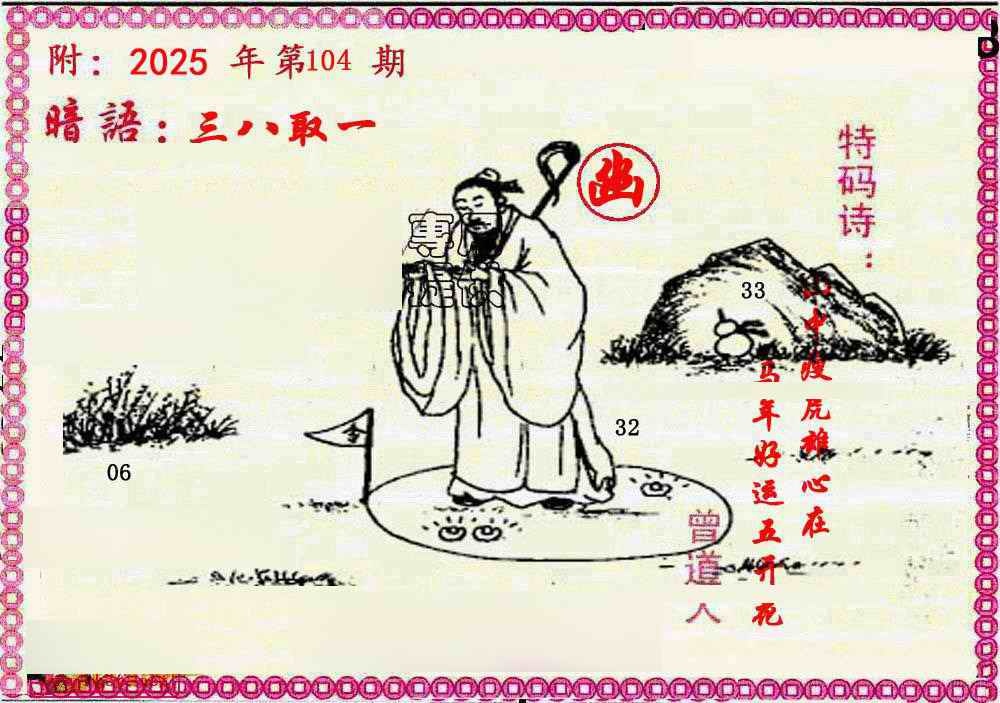 附：2025 年 第104 期
暗語：三八取一
幽
特码诗：
心中疲厌雄心在
马年好运五开花
曾道人
33
32
06